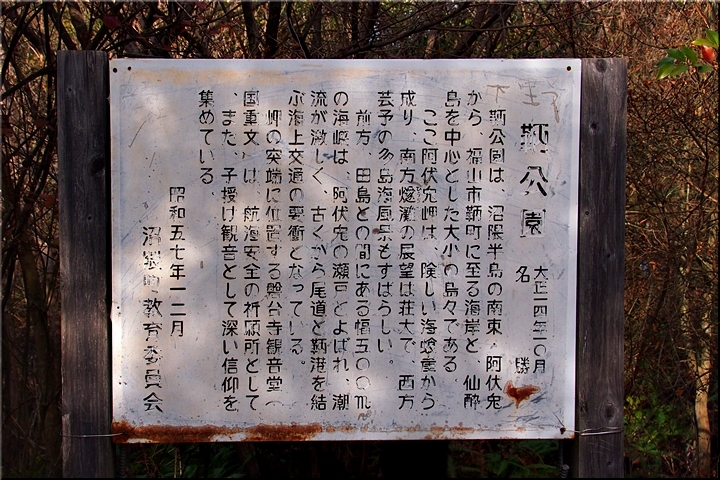 鞆公園
大正一四年一〇月
名勝
鞆公園は、沼隈半島の南東、阿伏兎
から、福山市鞆町に至る海岸と、仙酔
島を中心とした大小の島々である。
ここ阿伏兎岬は、険しい海蝕崖から
成り、南方燧灘の展望は壮大で、西方
芸予の多島海風景もすばらしい。
前方、田島との間にある幅五〇〇m
の海峡は、阿伏兎の瀬戸とよばれ、潮
流が激しく、古くから尾道と鞆港を結
ぶ海上交通の要衝となっている。
岬の突端に位置する磐台寺観音堂
国重文 は、航海安全の祈願所として
、また、子授け観音として深い信仰を
集めている
昭和五七年一二月
沼隈町教育委員会